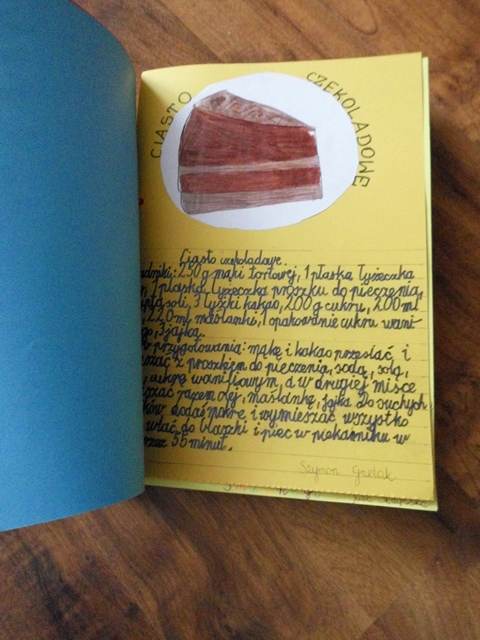 CIASTO CZEKOLADOWE
Ciasto czekoladowe.
adniki: 250 g mąki tortowej, 1 płaska łyżeczka
1 płaska łyżeczka proszku do pieczenia,
soli, 3 łyżki kakao, 200 g cukru, 200 ml
220 ml maślanki, 1 opakowanie cukru wani-
go, 3 jajka.
przygotowania: mąkę i kakao przesiać, i
szać z proszkiem do pieczenia, sodą, solą,
cukrem waniliowym, a w drugiej misce
szać razem olej, maślankę, jajka. Do suchych
ków dodać mokre i wymieszać wszystko
wlać do blaszki i piec w piekarniku w
przez 55 minut.
Szymon Gnelak